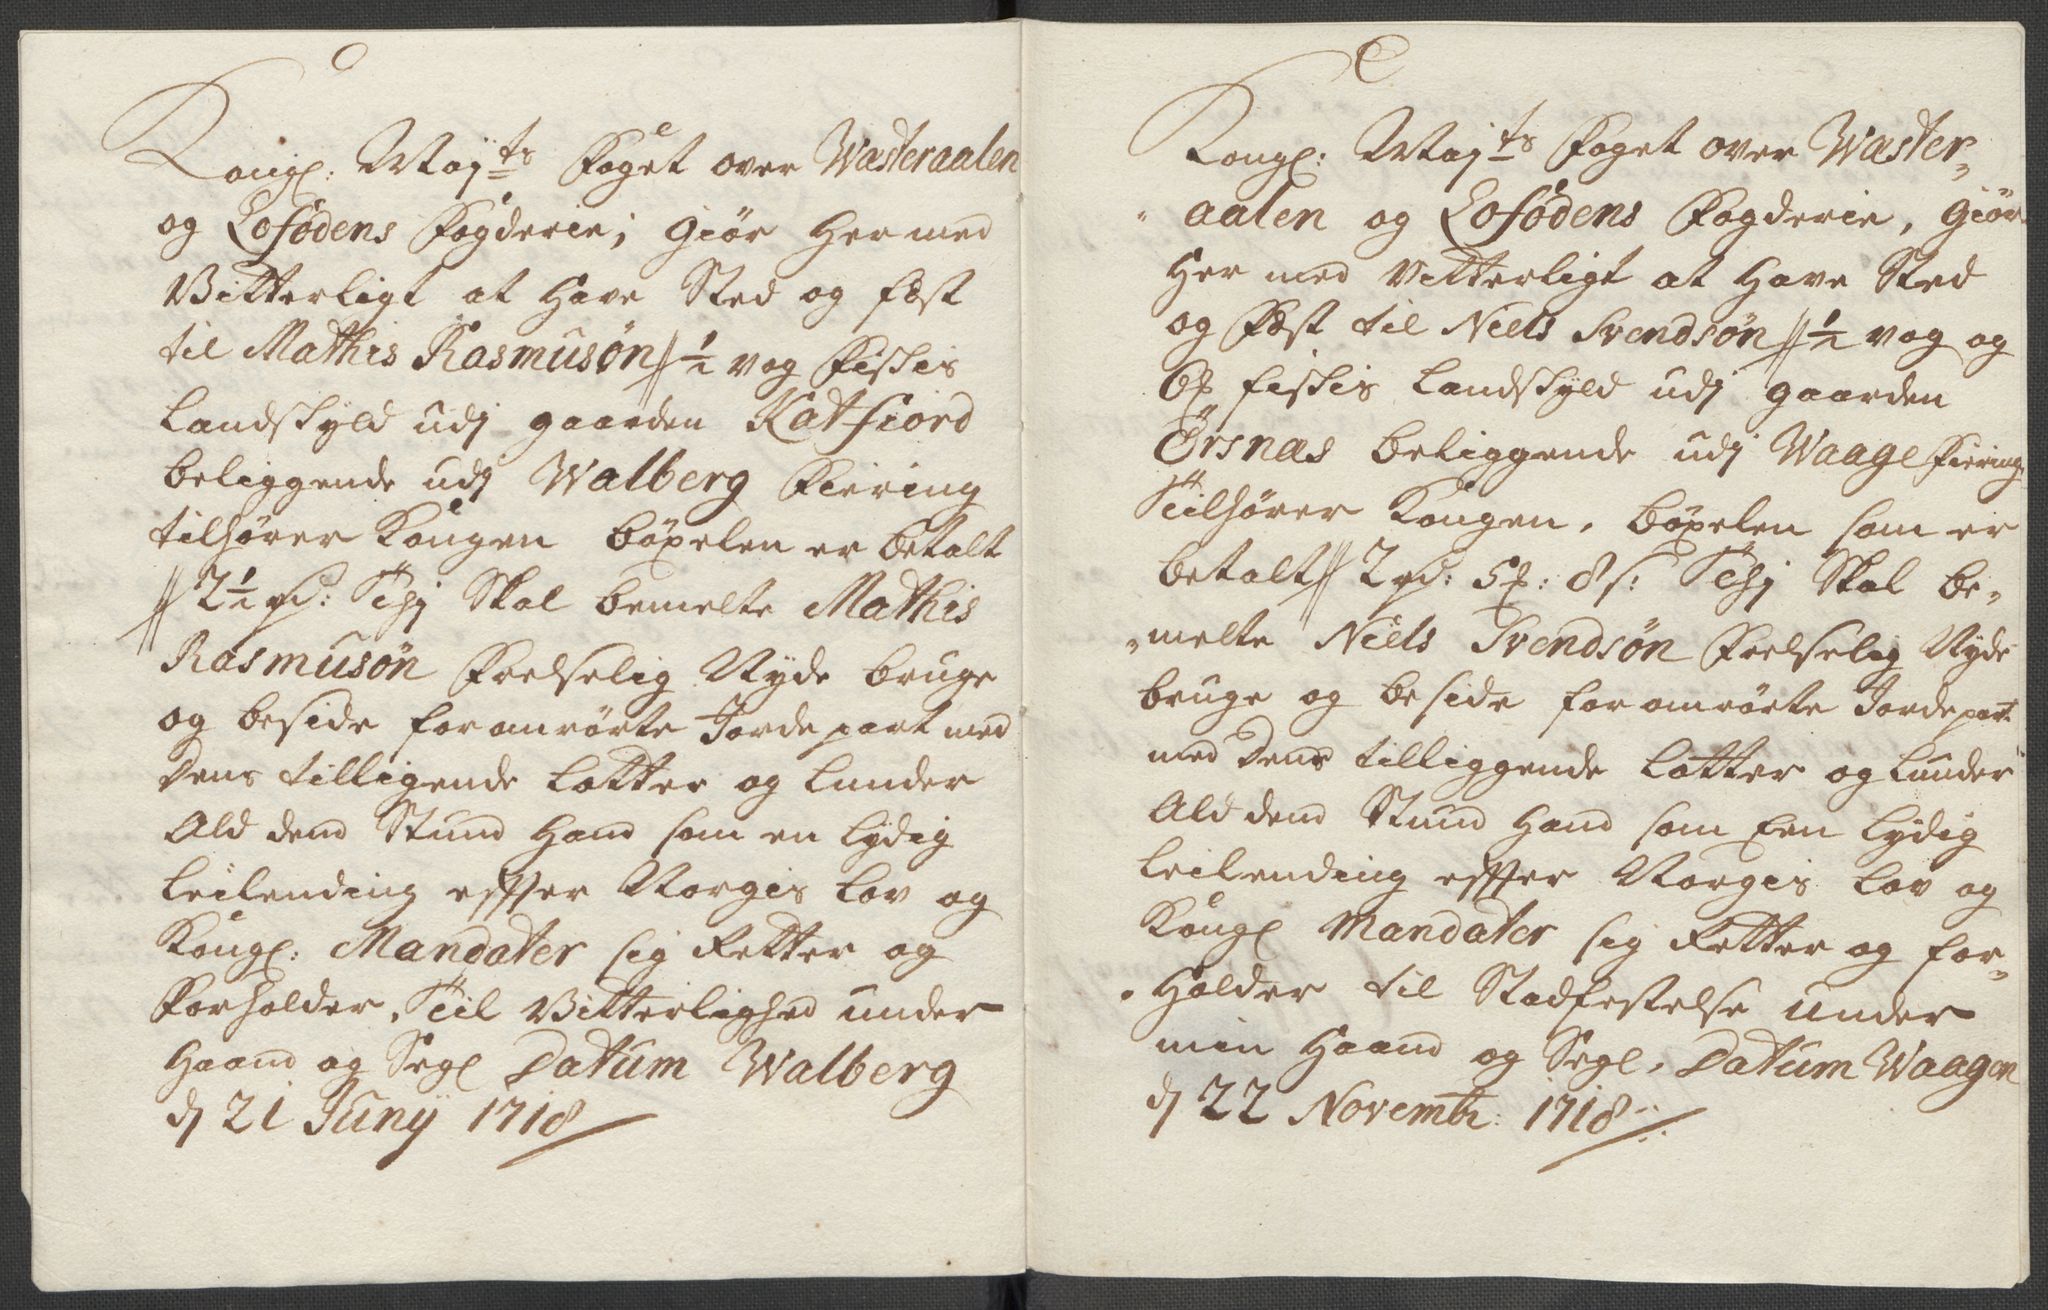 Kongl: Mayts Foget over Wasteraalen
og Lofodens Fogderie; Giør Hermed
Vitterligt at Have Sted og fæst
til Mathis Rasmusøn // ½ vog Fiskis
Landskyld udj gaarden Katfiord
beliggende udj Walberg Fiering
tilhører Kongen böxelen er betalt
// 2½ rd: Thj Skal bemelte Mathis
Rasmusøn Frelselig Nyde bruge
og beside foranrørte Jorde part med
dens tilligende Lotter og Lunder
Ald dend Stund Hand som en lydig
Leilending effter Norgis Lov og
Kongl: Mandater sig Retter og
Forholder, Til Vitterlighed under
Haand og Segl Datum Walberg
dj 21 Junij 1718
Kongl: Majts Foget over Waster-
aalen og Lofodens Fogderie, Giør
Her med Vitterligt at Have Sted
og Fæst til Niels Svendsøn // ½ vog og
fiskis Landskyld udj gaarden
Örsnas beliggende udj Waage Fiering
Tilhører Kongen, böxelen som er
betalt // 2 rd: 5 : 8 s: Thj Skal be-
melte Niels Svendsøn Frelselig Nyde
bruge og beside foranrørte Jorde part
med dens tilliggende Lotter og Lunder
Ald dend Stund Hand som Een lydig
Leilending effter Norgis Lov og
Kongl Mandater sig Retter og for-
Holder til Stadfestelse under
min Haand og Segl, Datum Waagen
dj 22 Novembr: 1718